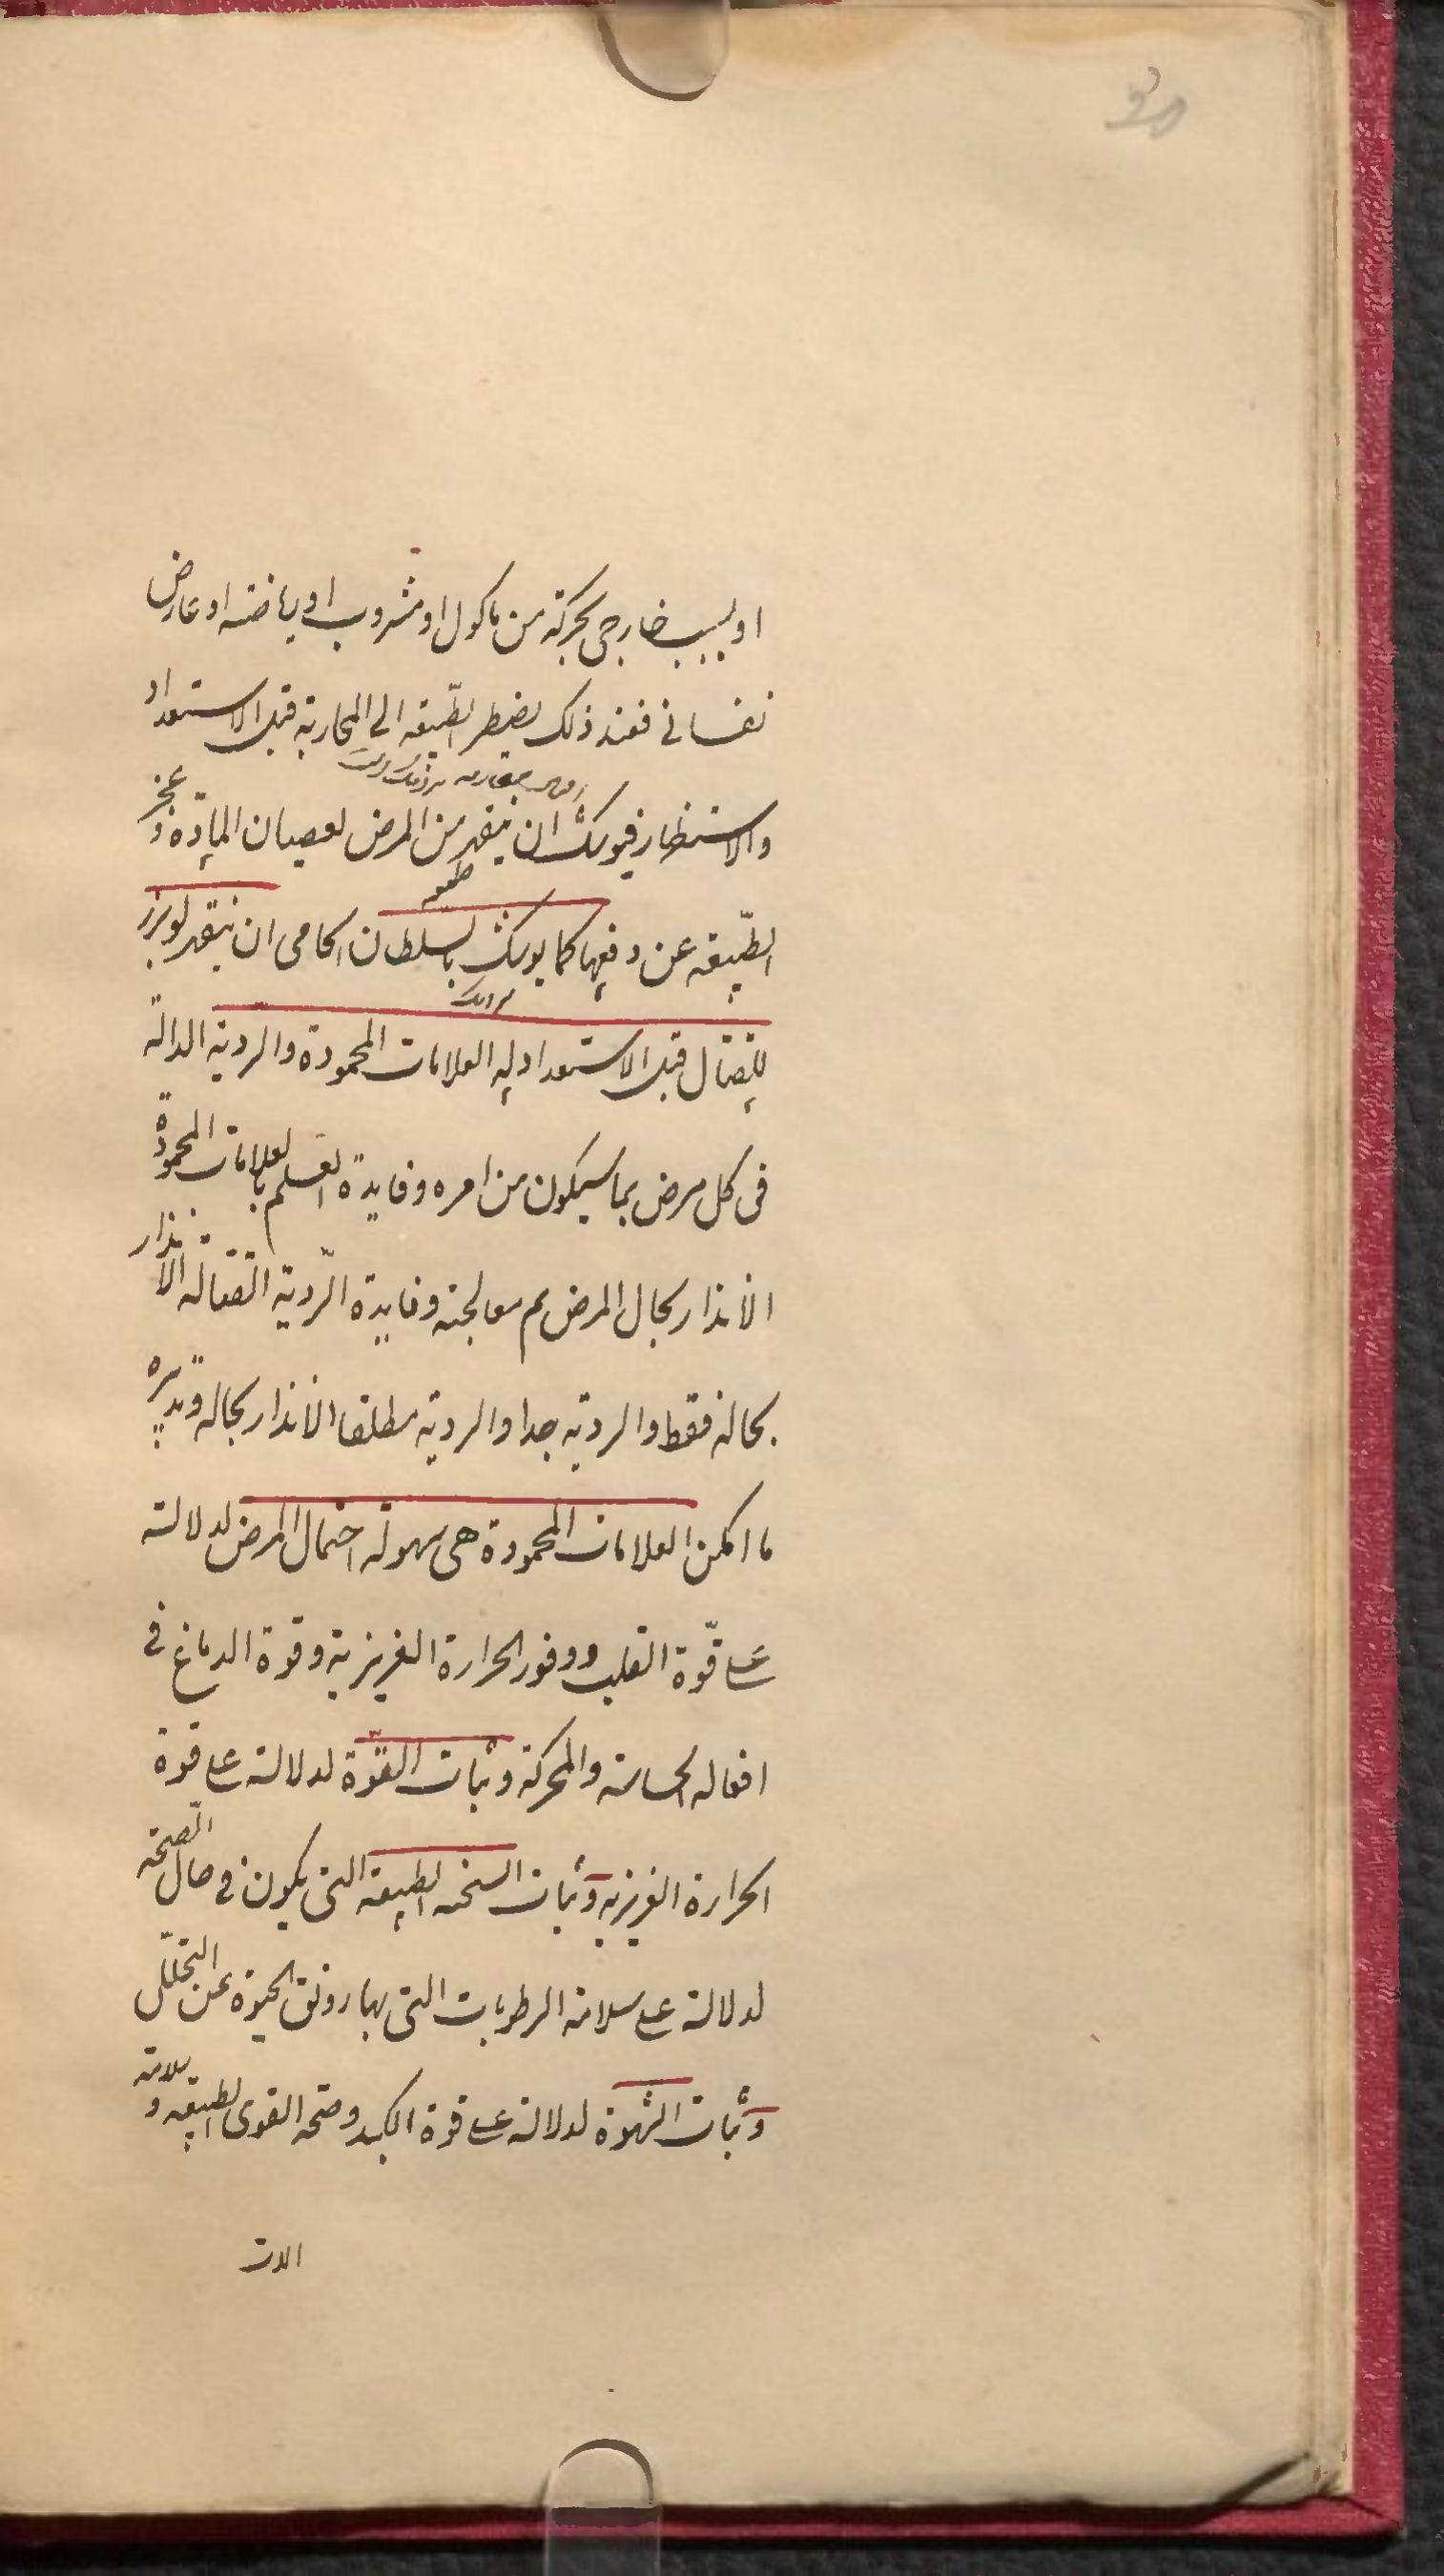 او بسبب خارجی یحرکه من ماکول او مشروب او ریاضه او عارض
نفسانی فعند ذلک یضطر الطّبیعه الی المحاربة قبل الاستعداد
والاستظهار فیوشک ان ینقهر من المرض لعصیان المادّة و عجز
الطّبیعه عن دفعها کما یوشک بالسلطان الحامی ان ینقهر لو برز
للقتال قبل الاستعداد له العلامات المحمودة والردیة الدالّة
فی کل مرض بما سیکون من امره و فایدة العلم بالعلامات المحمودة
الانذار بحال المرض ثم معالجته و فایدة الرّدیة القتالة الانذار
بحاله فقط والردیة جدا والردیة مطلقا الانذار بحاله و تدبیره
ما امکن العلامات المحمودة هی سهولة احتمال المرض لدلالته
علی قوّة القلب و وفور الحرارة الغریزیة و قوة الدماغ فی
افعاله الحساسة والمحرکة و ثبات القوّة لدلالته علی قوة
الحرارة الغریزیه و ثبات السخنه الطبیعة التی یکون فی حال الصّحّه
لدلالته علی سلامة الرطوبات التی بها رونق الحیوة عن التحلّل
و ثبات الشهوة لدلالته علی قوة الکبد و صحة القوی الطبیعه و سلامة
الات